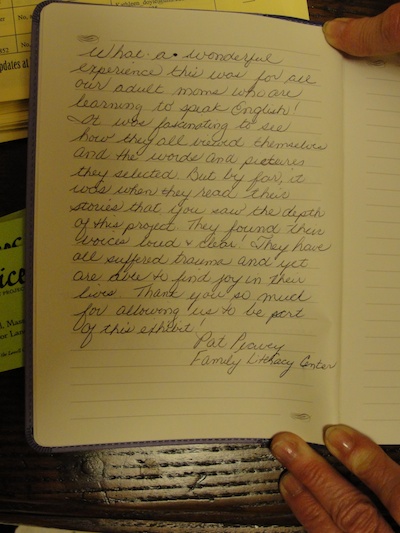 What a wonderful
experience this was for all
our adult moms who are
learning to speak English!
It was fascinating to see
how they all viewed themselves
and the words and pictures
they selected. But by far, it
was when they read their
stories that you saw the depth
of this project. They found their
voices loud & clear! They have
all suffered trauma and yet
are able to find joy in their
lives. Thank you so much
for allowing us to be part
of this exhibit.
Pat
Family Literacy Center